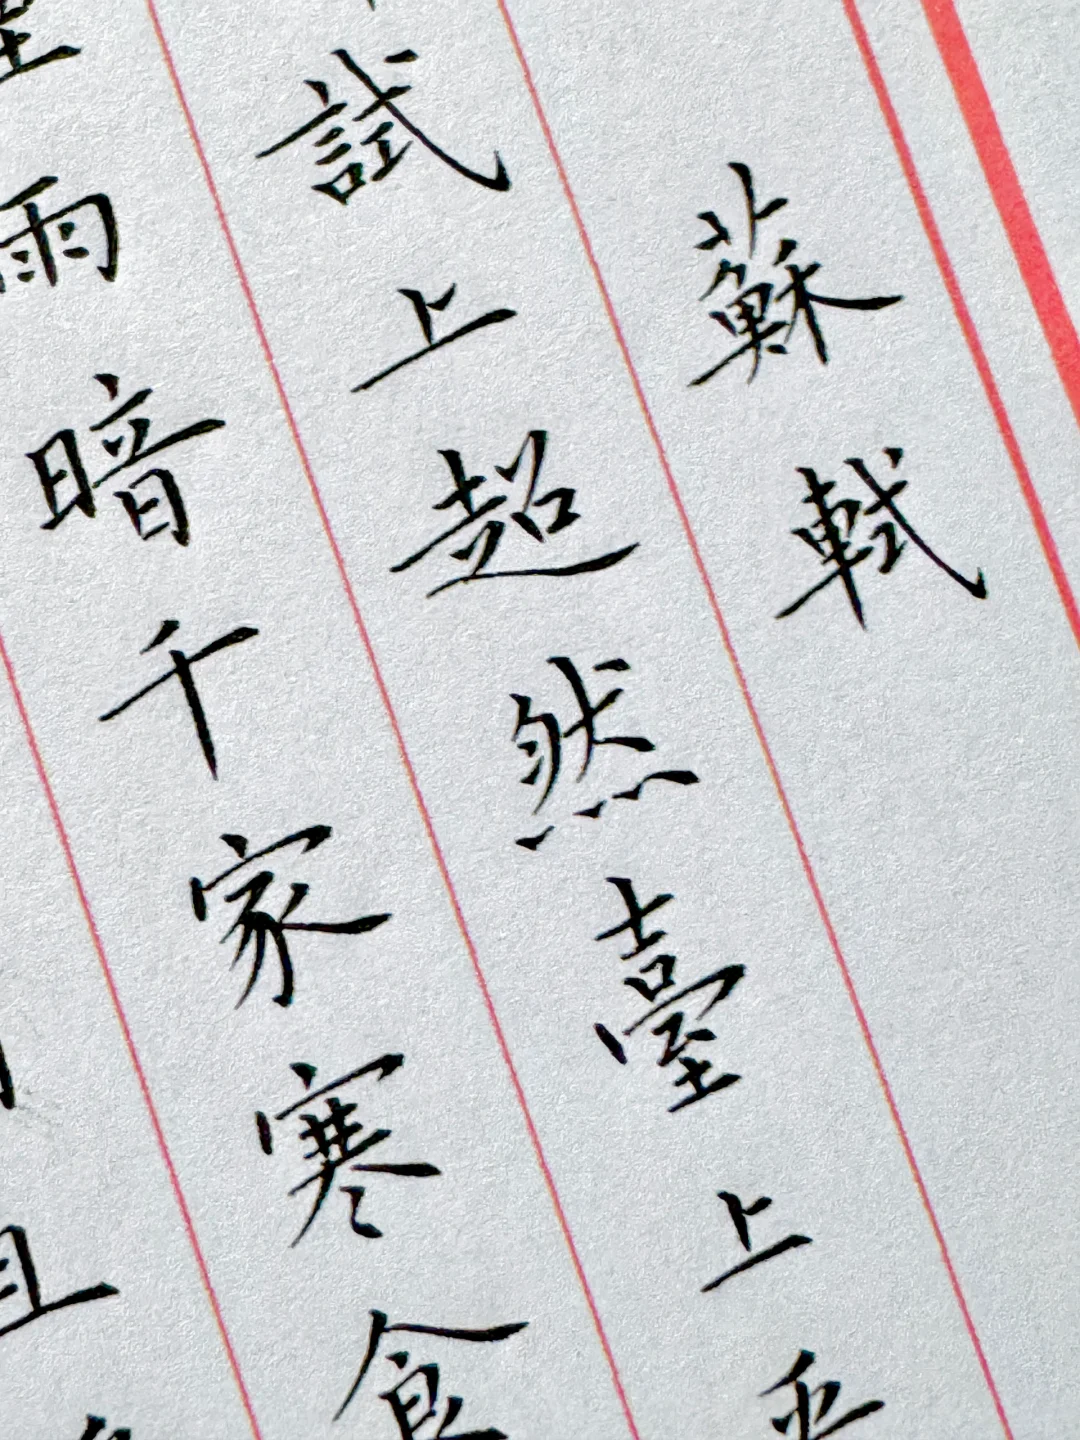 蘇軾
試上超然臺上
雨暗千家寒食
且